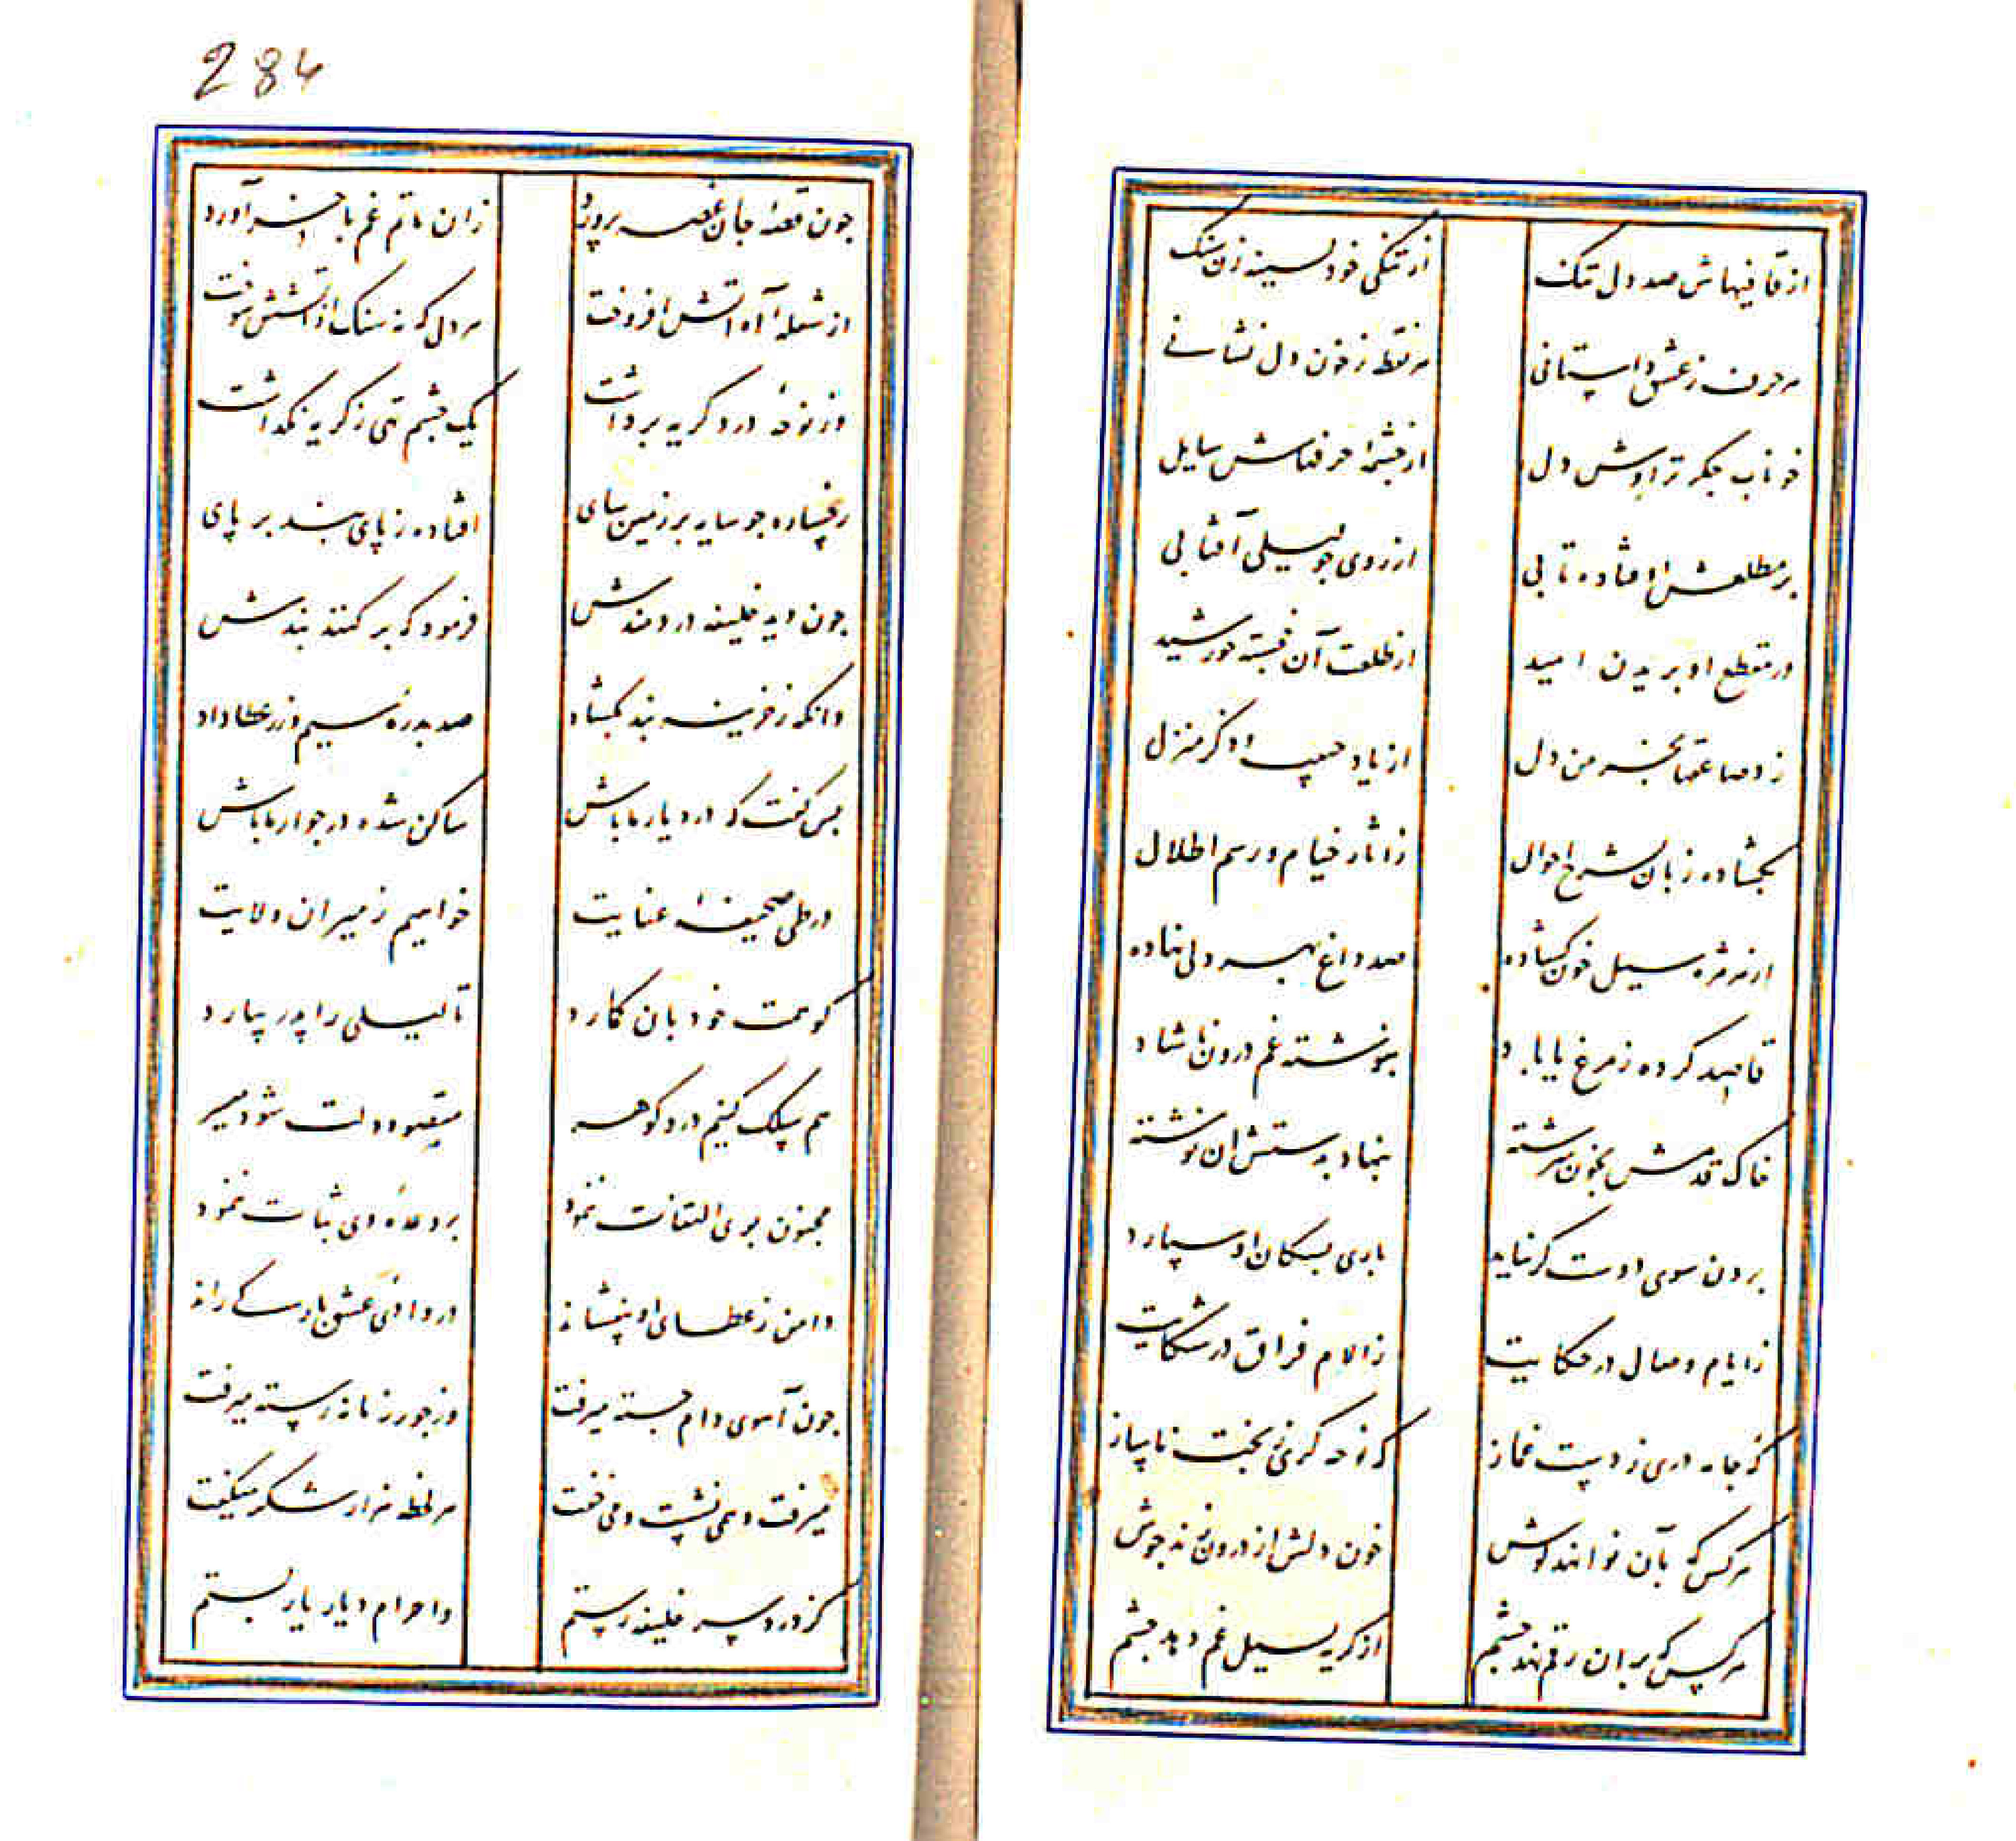 284
از قافیهاش صد دل تنک
از تنکی خود بسینه زن سنک
هر حرف ز عشق داستانی
هر نقطه ز خون دل نشانی
خوناب جکر تراوش دل
از چشمهٔ حرفهاش سایل
بر مطلعش اوفتاده تابی
از روی جو لیلی آفتابی
در مقطع او بریدن امید
از طلعت آن خجسته خورشید
از یاد حبیب و ذکر منزل
بکشاده زبان بشرح احوال
ز آثار خیام و رسم اطلال
از هر مژه سیل خون کشاده
صد داغ بهر دلی نهاده
قاصد کرده ز مرغ یا باد
بنوشته غم درون ناشاد
خاک قدمش بخون سرشته
بنهاد بدستش آن نوشته
بردن سوی دوست کر نیارد
باری بسکان او سپارد
ز ایام وصال در حکایت
ز آلام فراق در شکایت
که جامه دری ز دست غماز
که نوحه کری ز بخت ناساز
هر کس که بآن نوا نهد کوش
خون دلش از درون زند جوش
هر کس که بر آن رقم نهد چشم
از کریه سیل غم دهد چشم
جون قصهٔ جان غصه پرورد
زان ماتم غم بآخر آورد
از شعلهٔ آه آتش افروخت
هر دل که نه سنک از آتشش سوخت
وز نوحهٔ درد کریه برداشت
یک جشم تهی ز کریه نکذاشت
رخساره جو سایه بر زمین سای
افتاده ز پای بند بر پای
جون دید خلیفه دردمندش
فرمود که بر کنند بندش
وانکه ز خزینه بند بکشاد
صد بدرهٔ سیم و زر عطا داد
پس کفت که در دیار ما باش
ساکن شده در جوار ما باش
در طی صحیفهٔ عنایت
خواهیم ز میر آن ولایت
کو همت خود بآن کمارد
تا لیلی را پدر بیارد
هم سلک کنیم در دو کوهر
مقصود دلت شود میسر
مجنون بوی التفات ننمود
بر وعدهٔ وی ثبات ننمود
دامن ز عطای او بیفشاند
جون آهوی دام جسته میرفت
وز جور زمانه رسته میرفت
میرفت و همی نشست و می خفت
هر لحظه هزار شکر میکفت
کز درد سر خلیفه رستم
و احرام دیار یار بستم